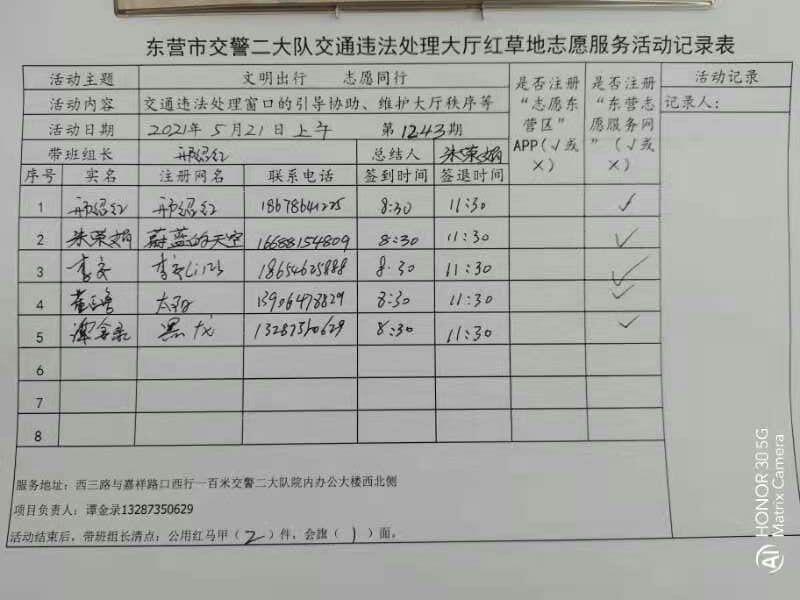 东营市交警二大队交通违法处理大厅红草地志愿服务活动记录表
活动主题 文明出行 志愿同行 是否注册“志愿东营区”APP(√或×) 是否注册“东营志愿服务网”(√或×) 活动记录
活动内容 交通违法处理窗口的引导协助、维护大厅秩序等 记录人:
活动日期 2021年5月21日上午 第1243期
带班组长 邢绍红 总结人 朱荣娟
序号 实名 注册网名 联系电话 签到时间 签退时间
1 邢绍红 邢绍红 18678641225 8:30 11:30 ✓
2 朱荣娟 蔚蓝的天空 16688154809 8:30 11:30 ✓
3 李 18654625888 8:30 11:30 ✓
4 太阳 13906478829 8:30 11:30 ✓
5 谭金录 黑龙 13287350629 8:30 11:30 ✓
6
7
8
服务地址:西三路与嘉祥路口西行一百米交警二大队院内办公大楼西北侧
项目负责人:谭金录13287350629
活动结束后,带班组长清点:公用红马甲(2)件,会旗(1)面。
HONOR 30 5G
Matrix Camera
AI